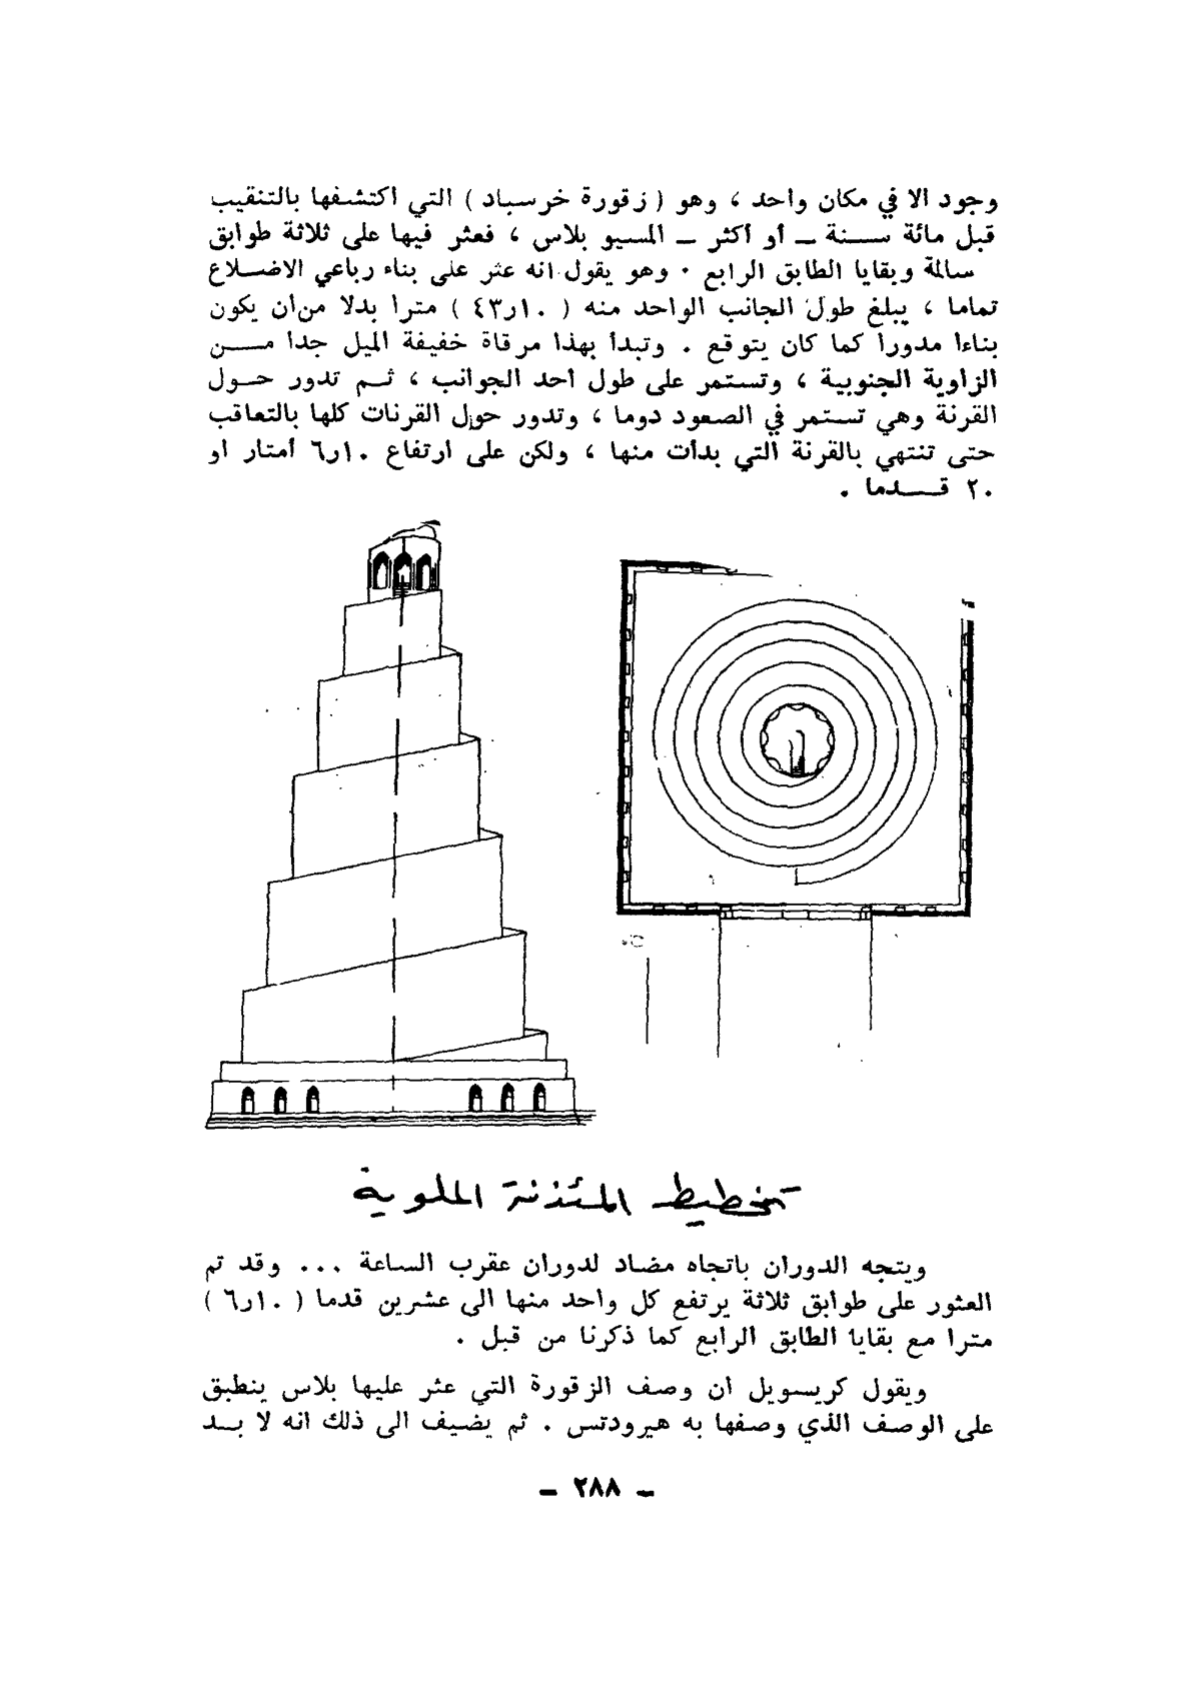 وجود الا في مكان واحد ، وهو ( زقورة خرسباد ) التي اكتشفها بالتنقيب
قبل مائة سـنة ـ أو أكثر ـ المسيو بلاس ، فعثر فيها على ثلاثة طوابق
سالمة وبقايا الطابق الرابع . وهو يقول انه عثر على بناء رباعي الاضـلاع
تماما ، يبلغ طول الجانب الواحد منه ( ١٠ر٤٣ ) مترا بدلا من ان يكون
بناءا مدورا كما كان يتوقع . وتبدأ بهذا مرقاة خفيفة الميل جدا مـن
الزاوية الجنوبية ، وتستمر على طول احد الجوانب ، ثـم تدور حـول
القرنة وهي تستمر في الصعود دوما ، وتدور حول القرنات كلها بالتعاقب
حتى تنتهي بالقرنة التي بدأت منها ، ولكن على ارتفاع ١٠ر٦ أمتار او
٢٠ قـدما .
تخطيط المئذنة الملوية
ويتجه الدوران باتجاه مضاد لدوران عقرب الساعة ... وقد تم
العثور على طوابق ثلاثة يرتفع كل واحد منها الى عشرين قدما ( ١٠ر٦ )
مترا مع بقايا الطابق الرابع كما ذكرنا من قبل .
ويقول كريسويل ان وصف الزقورة التي عثر عليها بلاس ينطبق
على الوصف الذي وصفها به هيرودتس . ثم يضيف الى ذلك انه لا بـد
ـ ٢٨٨ ـ